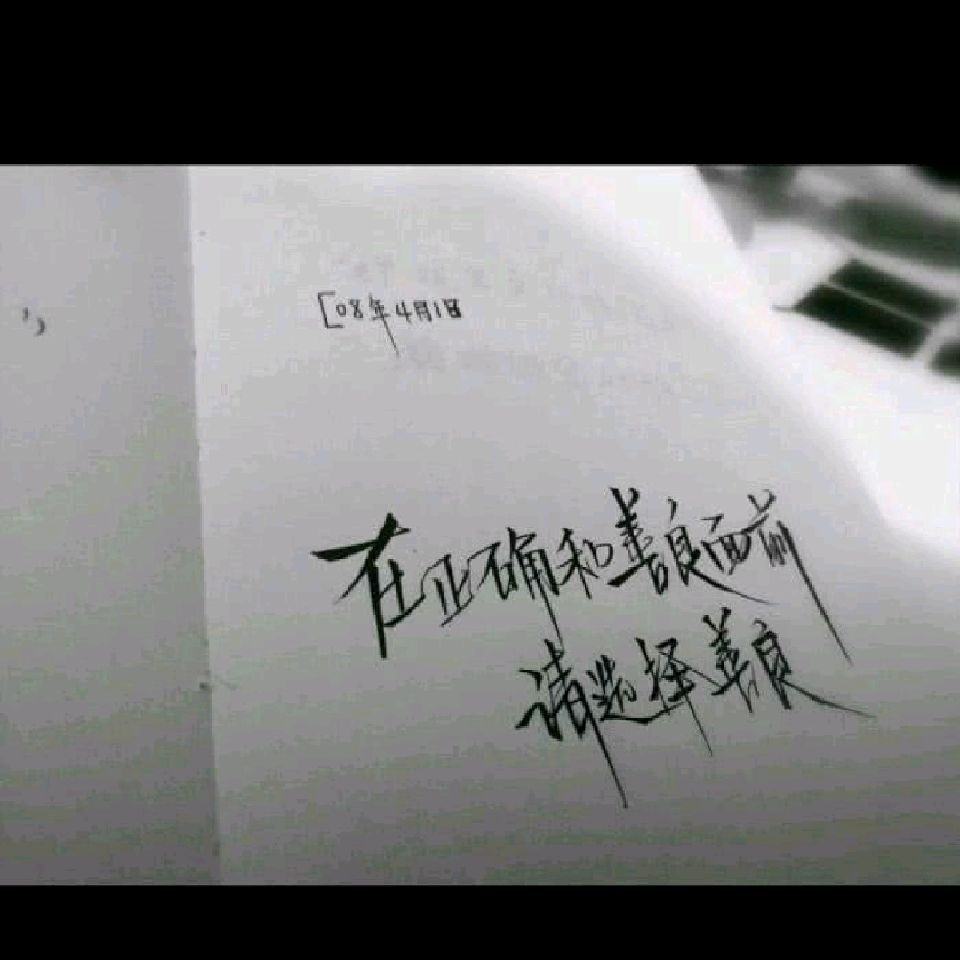 [08年4月1日
在正确和善良面前
请选择善良